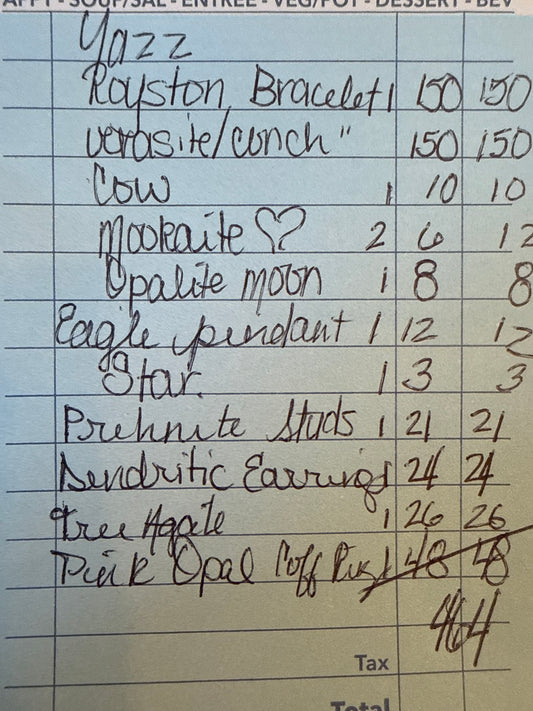 APPT - SOUP/SAL - ENTREE - VEG/POT - DESSERT - BEV
Yazz
Royston Bracelet 1 150 150
verasite/conch " 150 150
Cow 1 10 10
Mookaite ♡ 2 6 12
Opalite moon 1 8 8
Eagle pendant 1 12 12
Star. 1 3 3
Prehnite Studs 1 21 21
Dendritic Earrings 24 24
Tree Agate 1 26 26
Pink Opal Coff 1 48 48
464
Tax
Total